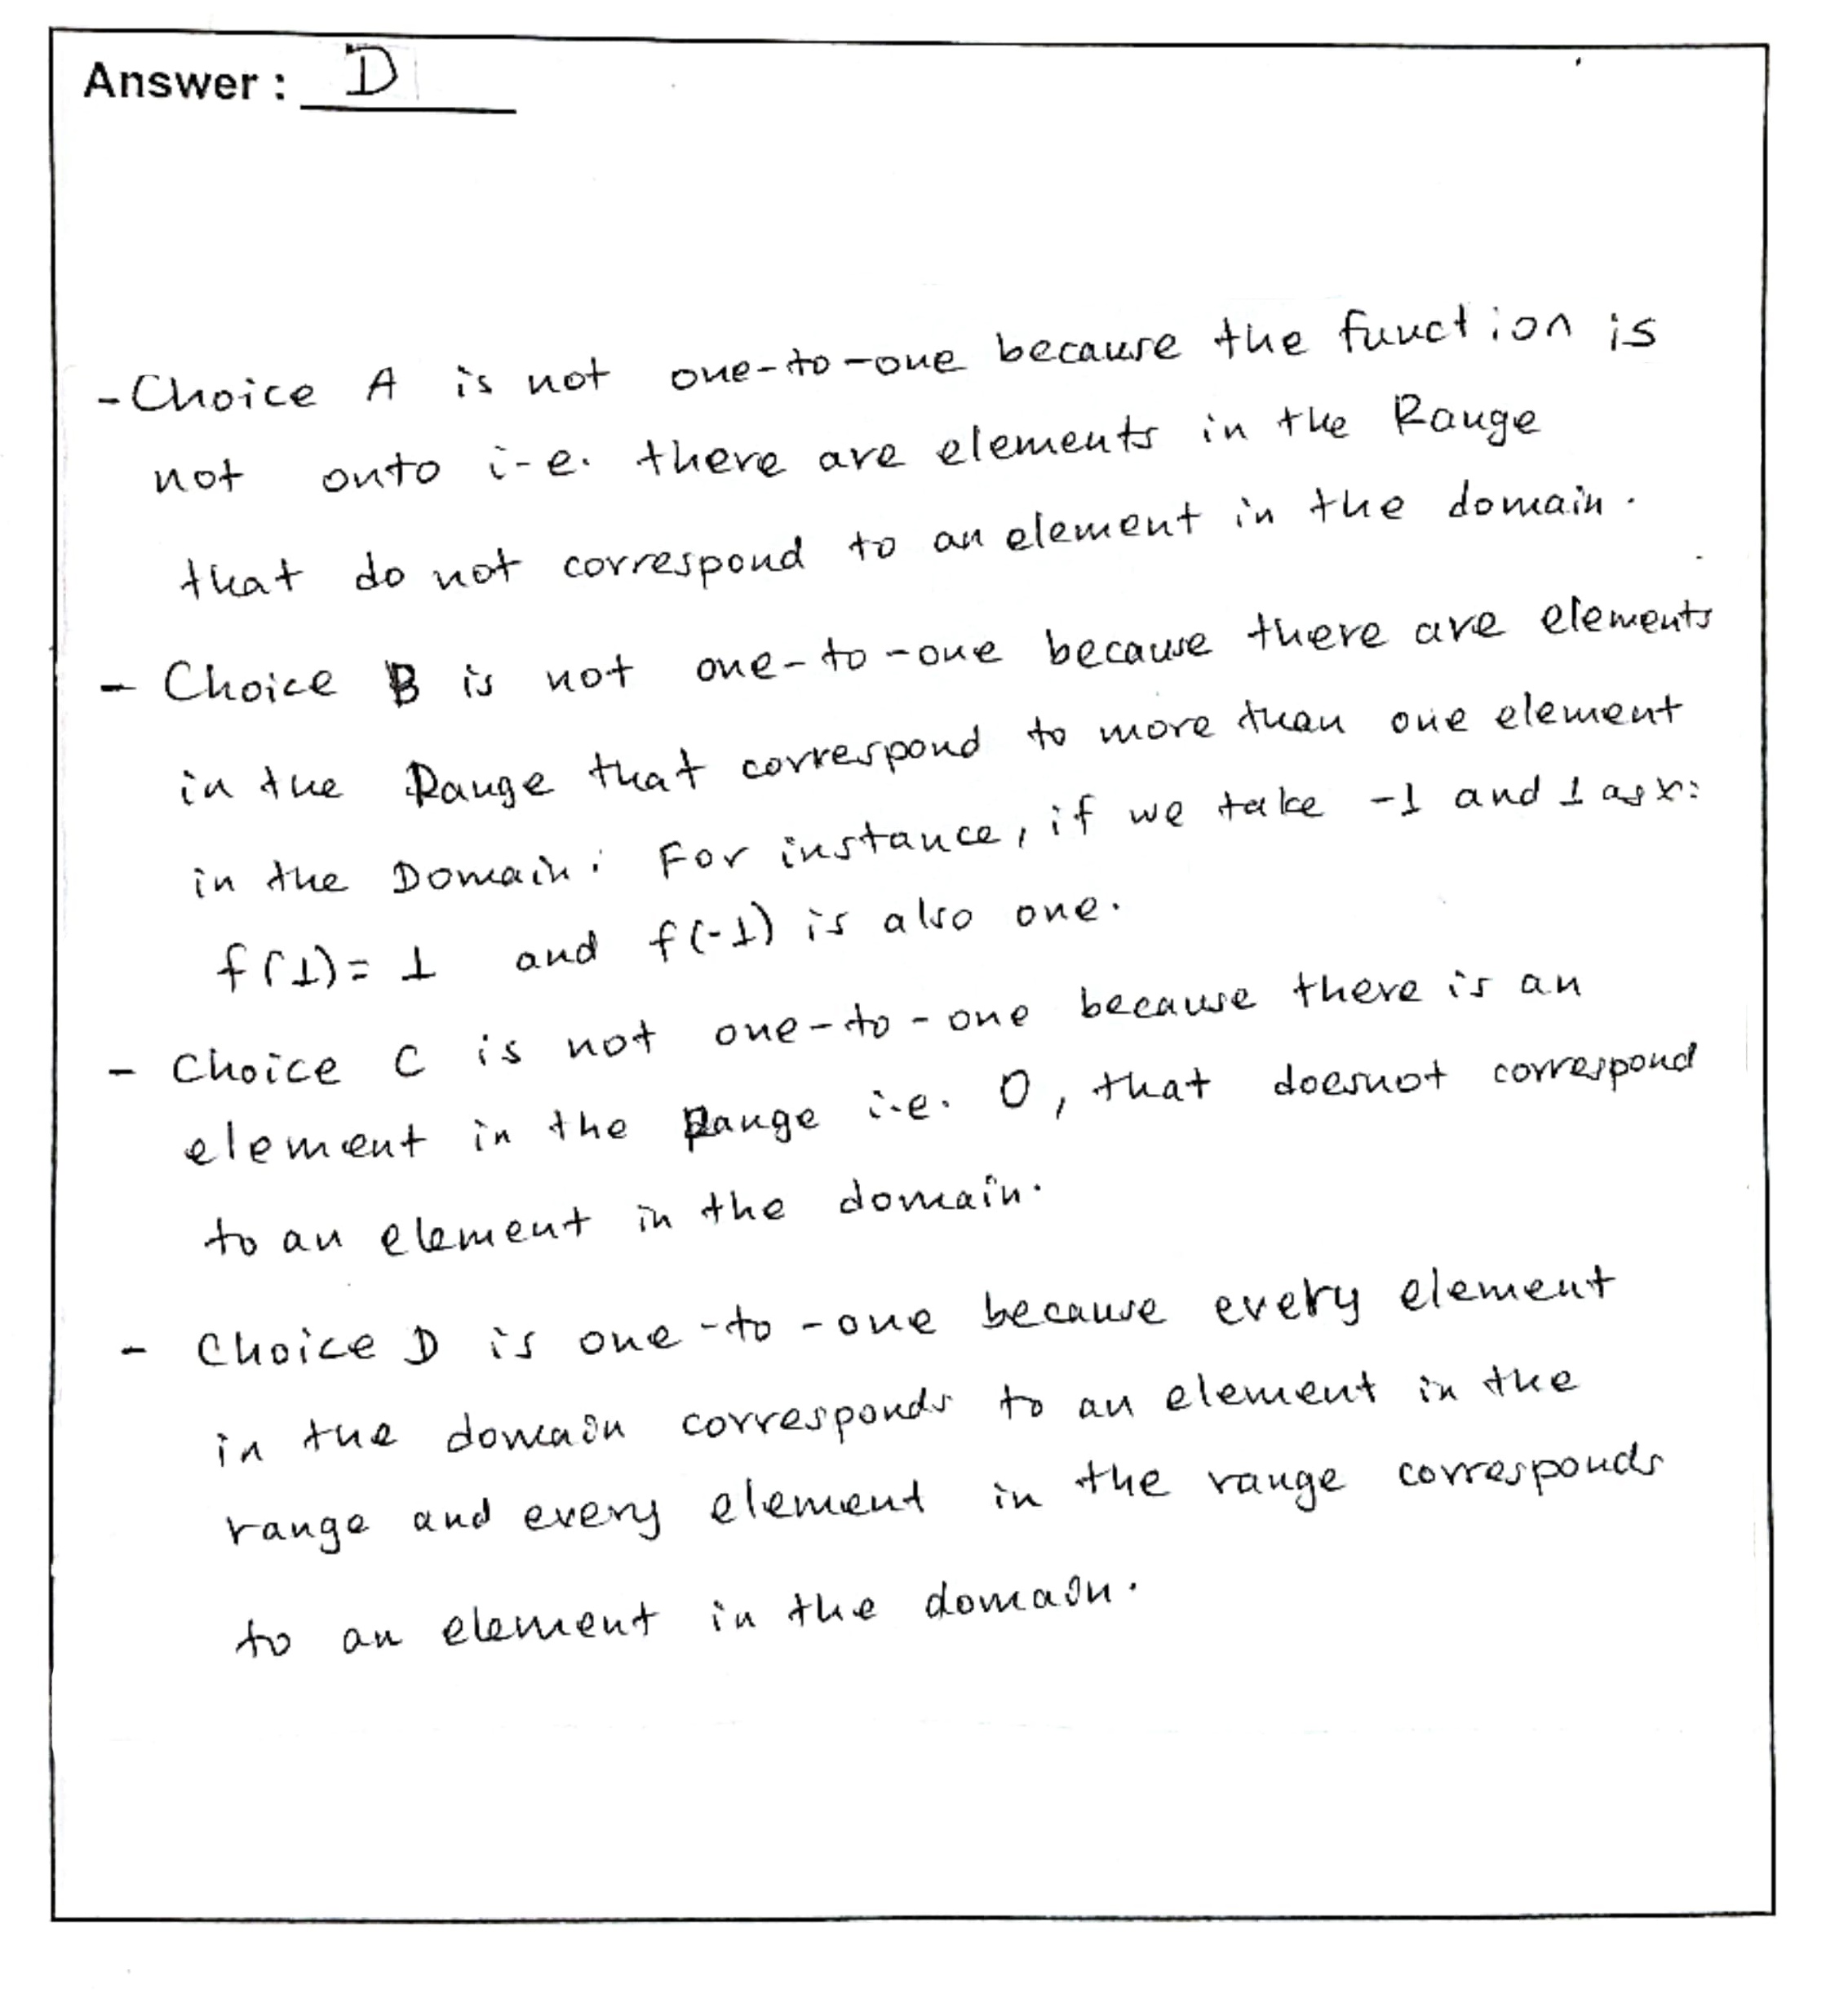 Answer : D
- Choice A is not one-to-one because the function is
not onto i-e. there are elements in the Range
that do not correspond to an element in the domain.
- Choice B is not one-to-one because there are elements
in the Range that correspond to more than one element
in the Domain. For instance, if we take -1 and 1 as x:
f(1)= 1 and f(-1) is also one.
- Choice C is not one-to-one because there is an
element in the Range i.e. 0, that doesnot correspond
to an element in the domain.
- Choice D is one-to-one because every element
in the domain corresponds to an element in the
range and every element in the range corresponds
to an element in the domain.